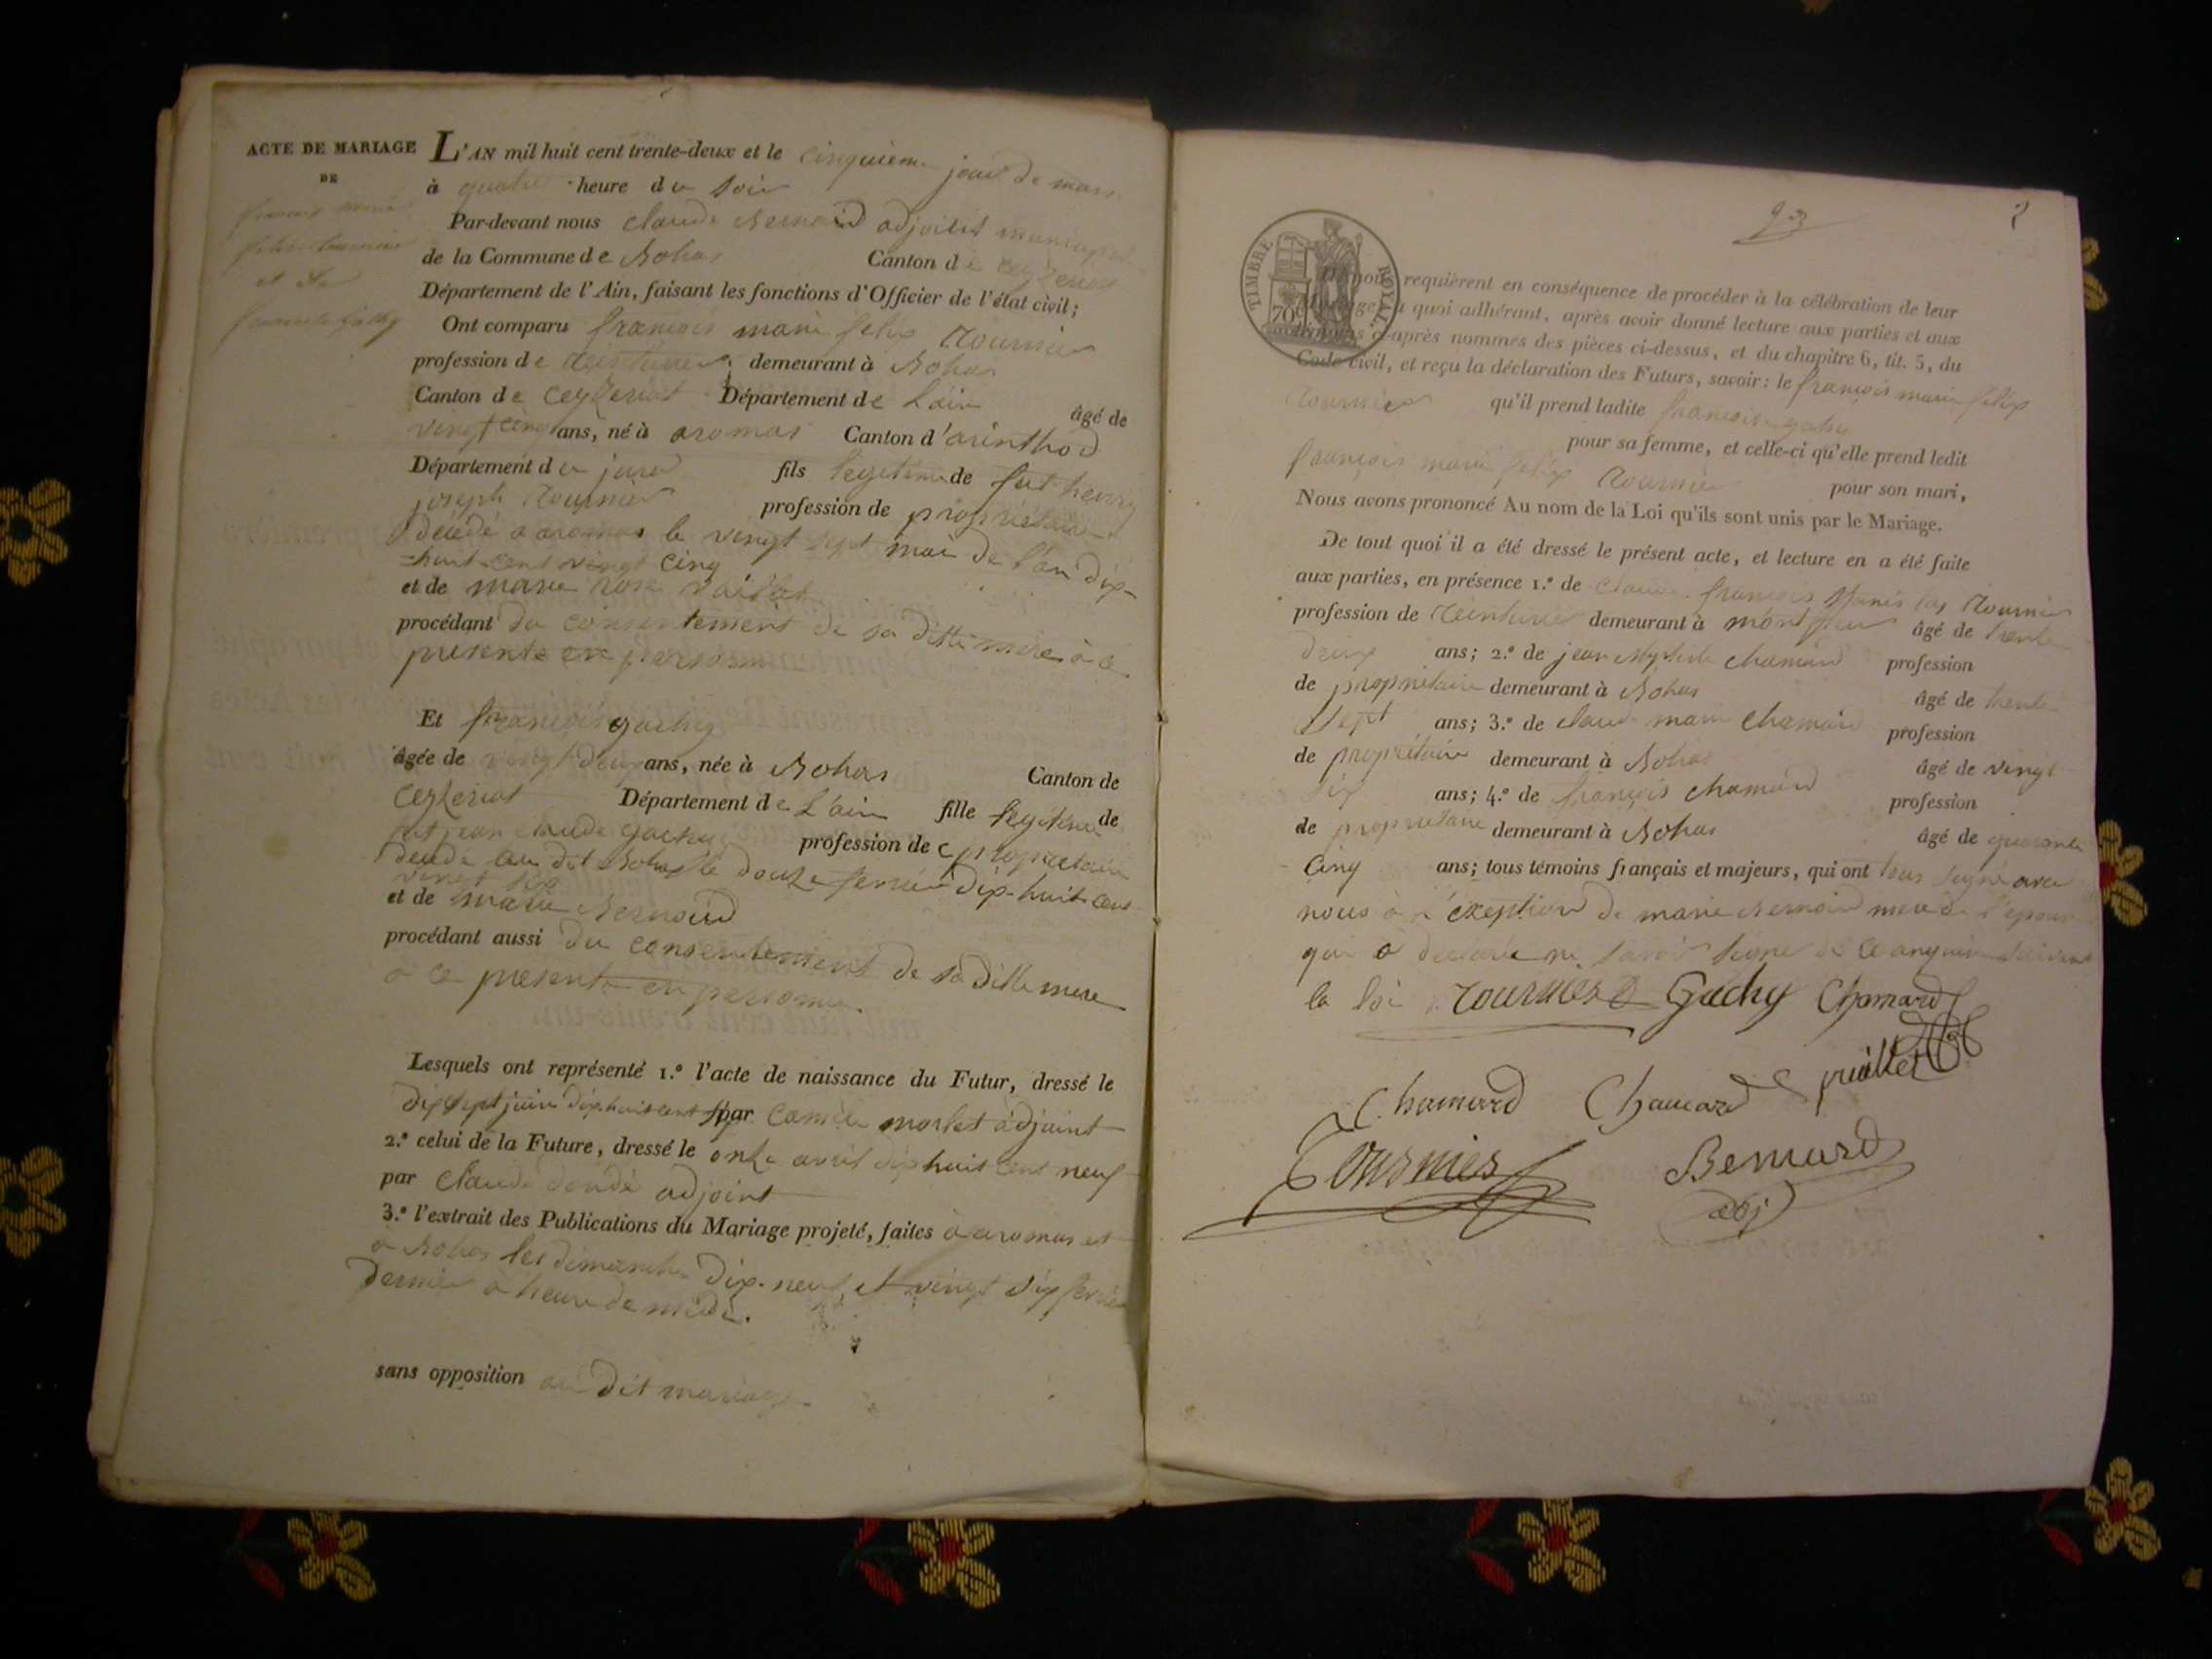 ACTE DE MARIAGE
DE
françois marie
felix tournier
et de
francoise gachy
L'AN mil huit cent trente-deux et le cinquieme jour de mars
à quatre heure du soir
Par-devant nous claude Bernard adjoint municipal
de la Commune de Bohas Canton de ceyzeriat
Département de l'Ain, faisant les fonctions d'Officier de l'état civil;
Ont comparu françois marie felix tournier
profession de teinturier demeurant à Bohas
Canton de ceyzeriat Département de l'ain âgé de
vingt cinq ans, né à aromas Canton d'arinthod
Département du jura fils legitime de fut henry
joseph tournier profession de propriétaire
décédé a aromas le vingt sept mai de l'an dix-
huit-cent vingt cinq
et de marie rose
procédant du consentement de sa ditte mere à ce
presente en personne
Et françoise gachy
âgée de vingt deux ans, née à Bohas Canton de
ceyzeriat Département de l'ain fille legitime de
fut jean claude gachy profession de propriétaire
décédé au dit Bohas le douze fevrier dix-huit-cent
vingt six
et de marie Bernard
procédant aussi du consentement de sa ditte mere
a ce presente en personne
Lesquels ont représenté 1.º l'acte de naissance du Futur, dressé le
dix sept juin dix huit cent par morlet adjoint
2.º celui de la Future, dressé le onze avril dix huit cent neuf
par claude adjoint
3.º l'extrait des Publications du Mariage projeté, faites à aromas et
a Bohas les dimanches dix-neuf et vingt six fevrier
dernier à heure de midi.
sans opposition au dit mariage
23
TIMBRE ROYAL
70
nous requièrent en conséquence de procéder à la célébration de leur
Mariage, à quoi adhérant, après avoir donné lecture aux parties et aux
témoins ci-après nommés des pièces ci-dessus, et du chapitre 6, tit. 5, du
Code civil, et reçu la déclaration des Futurs, savoir: le françois marie felix
tournier qu'il prend ladite francoise gachy
pour sa femme, et celle-ci qu'elle prend ledit
françois marie felix tournier pour son mari,
Nous avons prononcé Au nom de la Loi qu'ils sont unis par le Mariage.
De tout quoi il a été dressé le présent acte, et lecture en a été faite
aux parties, en présence 1.º de claude françois stanislas tournier
profession de teinturier demeurant à montfleur âgé de trente
deux ans; 2.º de jean Bptiste chamard profession
de propriétaire demeurant à Bohas âgé de trente
sept ans; 3.º de claude marie chamard profession
de propriétaire demeurant à Bohas âgé de vingt
six ans; 4.º de françois chamard profession
de propriétaire demeurant à Bohas âgé de quarante
cinq ans; tous témoins français et majeurs, qui ont tous signé avec
nous à l'exeption de marie Bernard mere de l'epouse
qui a declaré ne savoir signé de ce enquise suivant
la loi tournier Gachy Chamard
C. hamard Chamard
Tournier Bernard
adj